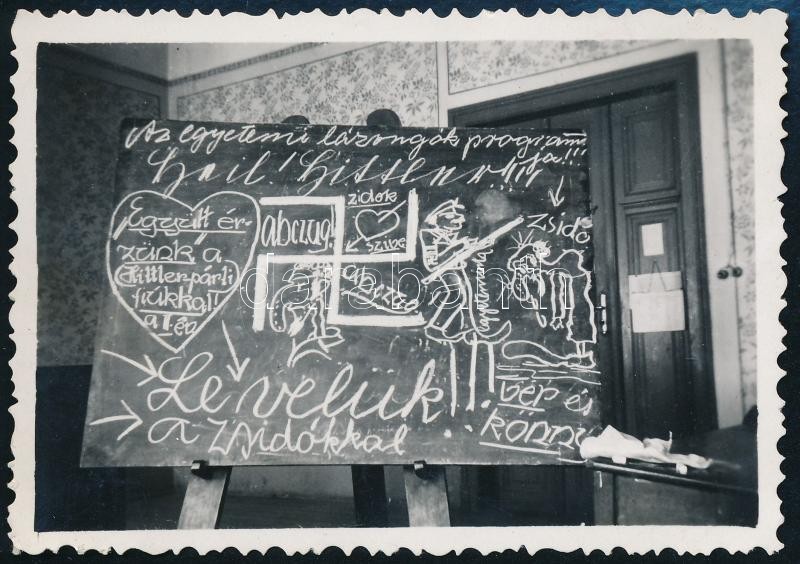 Az egyetemi lázongók program
ja!!!
Heil! Hittler!!!
Együtt ér-
zünk a
Hittlerpárti
fiúkkal!!
a I. év
abczug!
zidók
szive
abczug
Zsidó
Le velük!!!
a zsidókkal
vér és
könny
darabanth